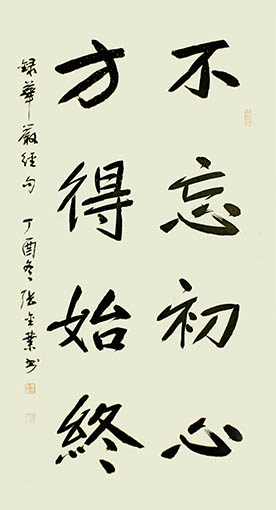 不忘初心
方得始終
録華嚴經句 丁酉冬 張金業书